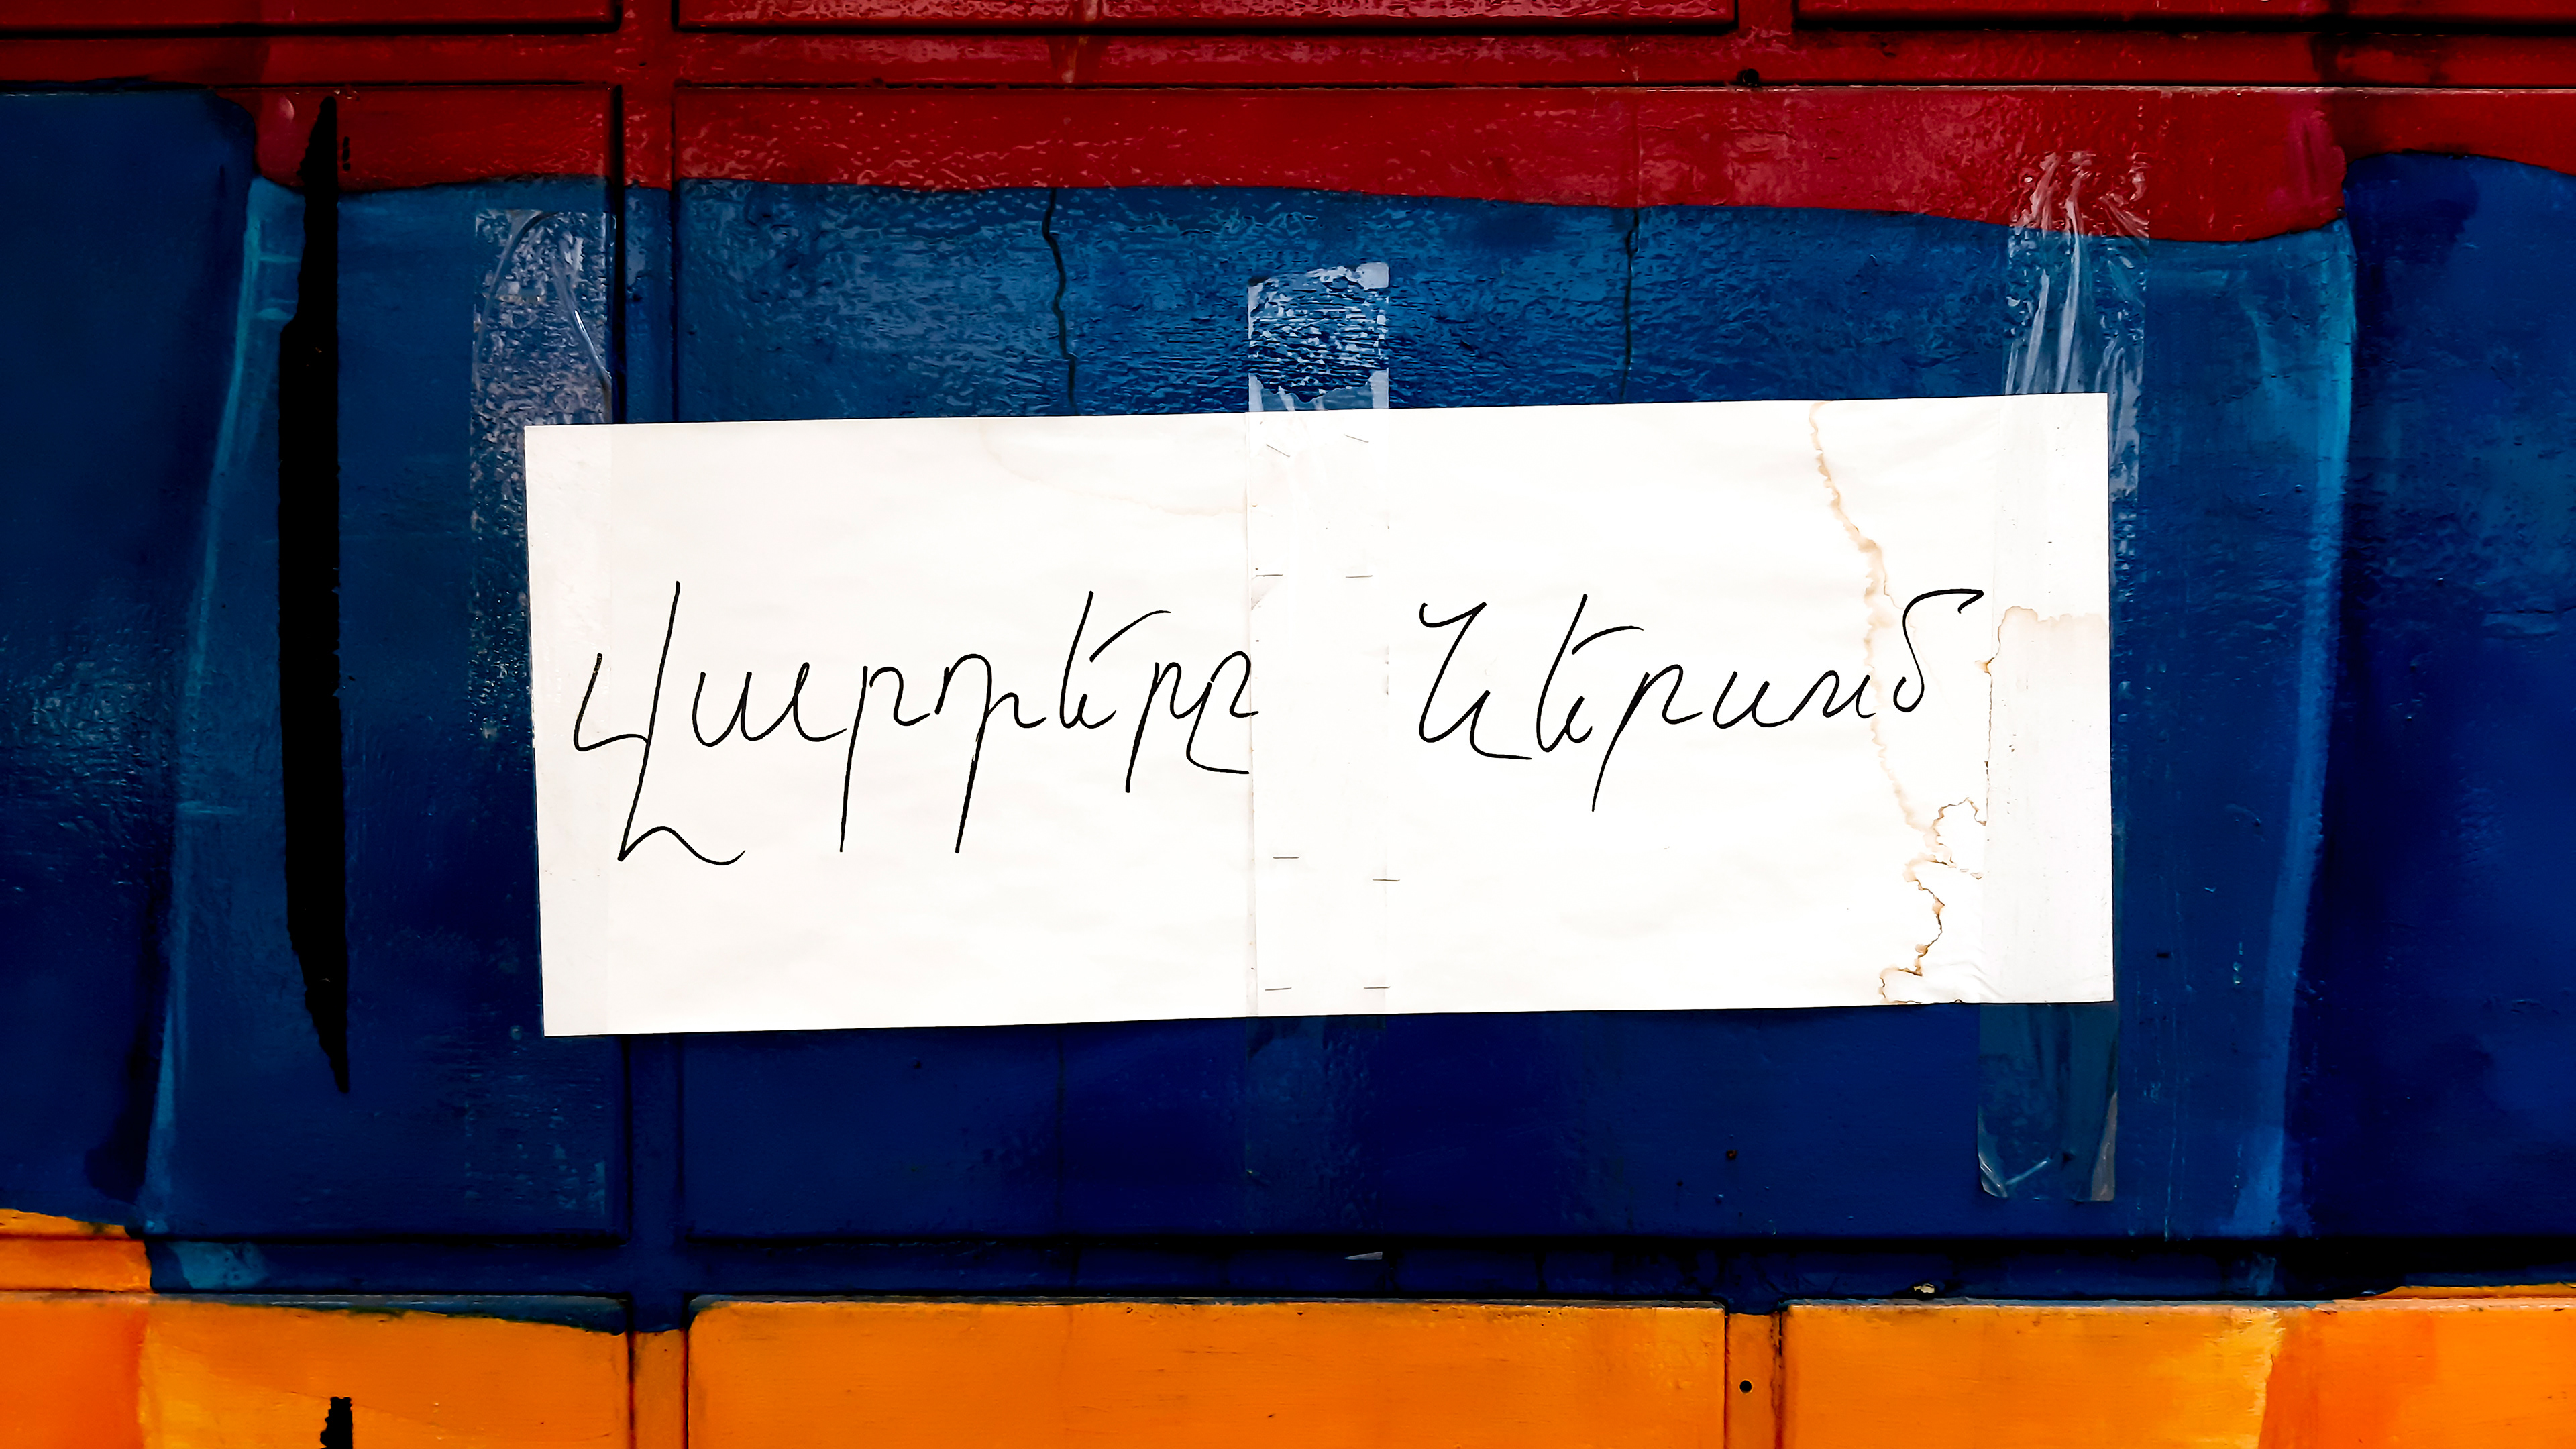 Վարդերը Ներսում